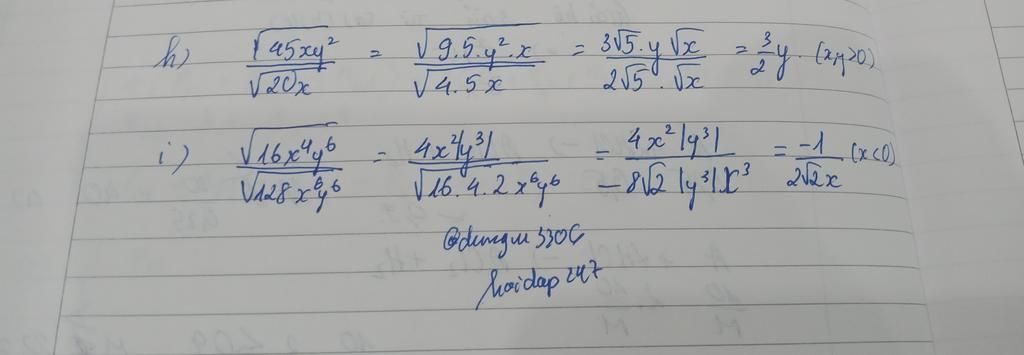 h) √45xy² / √20x = √9.5.y².x / √4.5x = 3√5.y√x / 2√5.√x = 3/2 y. (x,y>0)
i) √16x⁴y⁶ / √128x⁶y⁶ = 4x²|y³| / √16.4.2x⁶y⁶ = 4x²|y³| / -8√2|y³|x³ = -1 / 2√2x (x<0)
hoidap247